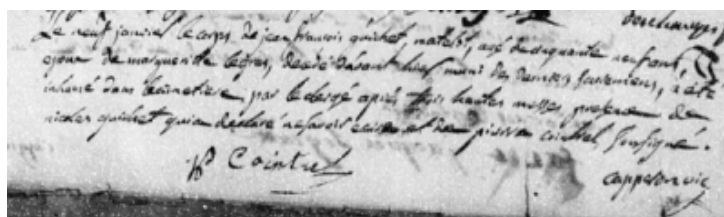 deschamps
Le neuf janvier le corps de jean francois guichet, matelot, agé de cinquante neuf ans,
epoux de margueritte legros, decedé davant hier muni des derniers sacremens, a été
inhumé dans le cimetiere par le clergé après trois hautes messes, presence de
nicolas guichet qui a déclaré ne savoir ecrire et de cointrel soussigné.
Cointrel